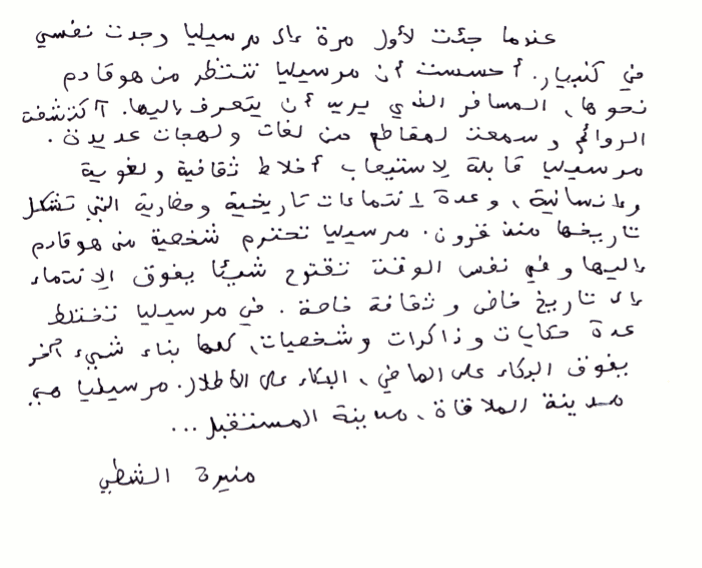 عندما جئت لأول مرة إلى مرسيليا وجدت نفسي
في كنبيار. أحسست أن مرسيليا تنتظر من هو قادم
نحوها، المسافر الذي يريد أن يتعرف إليها. اكتشفت
الروائح وسمعت لمقاطع من لغات ولهجات عديدة.
مرسيليا قابلة لاستيعاب أخلاط ثقافية ولغوية
وإنسانية، وعدة انتماءات تاريخية وحضارية التي تشكل
تاريخها منذ قرون. مرسيليا تحترم شخصية من هو قادم
إليها وفي نفس الوقت تقترح شيئا يفوق الانتماء
إلى تاريخ خاص وثقافة خاصة. في مرسيليا تختلط
عدة حكايات وذاكرات وشخصيات، كلها بناء شيء آخر
يفوق البكاء على الماضي، البكاء على الأطلال. مرسيليا هي
مدينة الملاقاة، مدينة المستقبل...
منيرة الشطي